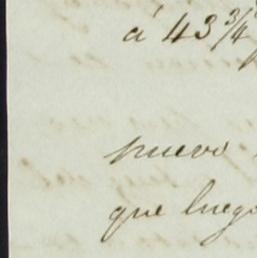 á 43 3/4
nuevo
que luego